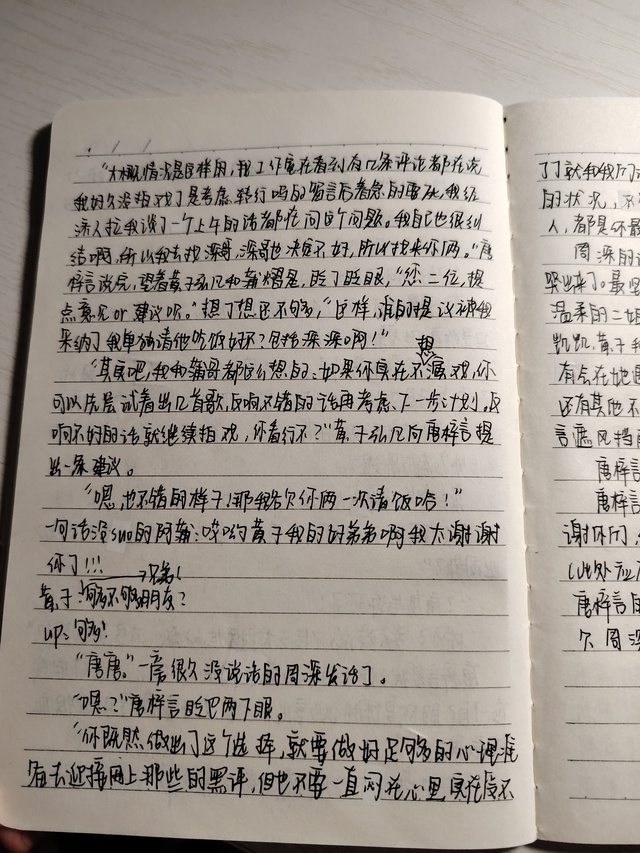 “大概情况是这样的，我工作室在看到有几条评论都在说
我好久没拍戏了是考虑转行吗的留言后着急的要死，我经
济人拉我谈了一个上午的话都在问这个问题。我自己也很纠
结啊，所以我去找深哥，深哥也决定不好，所以找来你俩。”唐
梓言说完，望着黄子弘凡和蒲熠星，眨了眨眼，“您二位，提
点意见or建议呗。”想了想还不够，“这样，谁的提议被我
采纳了我单独请他吃饭好不？包括深深啊！”
想
“其实吧，我和蒲哥都这么想的：如果你实在不演戏，你
可以先尝试着出几首歌，反响不错的话再考虑下一步计划。反
响不好的话就继续拍戏，你看行不？”黄子弘凡向唐梓言提
出一条建议。
“嗯，也不错的样子！那我各欠你俩一次请饭哈！”
一句话没suo的阿蒲：哎哟黄子我的好弟弟啊我太谢谢
你了!!!
→兄弟！
黄子：够不够朋友？
up：够！
“唐唐。”一旁很久没说话的周深发话了。
“嗯？”唐梓言眨巴两下眼。
“你既然做出了这个选择，就要做好足够多的心理准
备去迎接网上那些的黑评，但也不要一直闷在心里，实在受不
了了就和我们
的状况，不
人，都是你最
周深的
哭出来了。最坚
温柔的二
凯凯，黄子和
有点在地
还有其他不
言遮风挡雨
唐梓言
唐梓言
谢你们，
（此处应
唐梓言的
欠周深